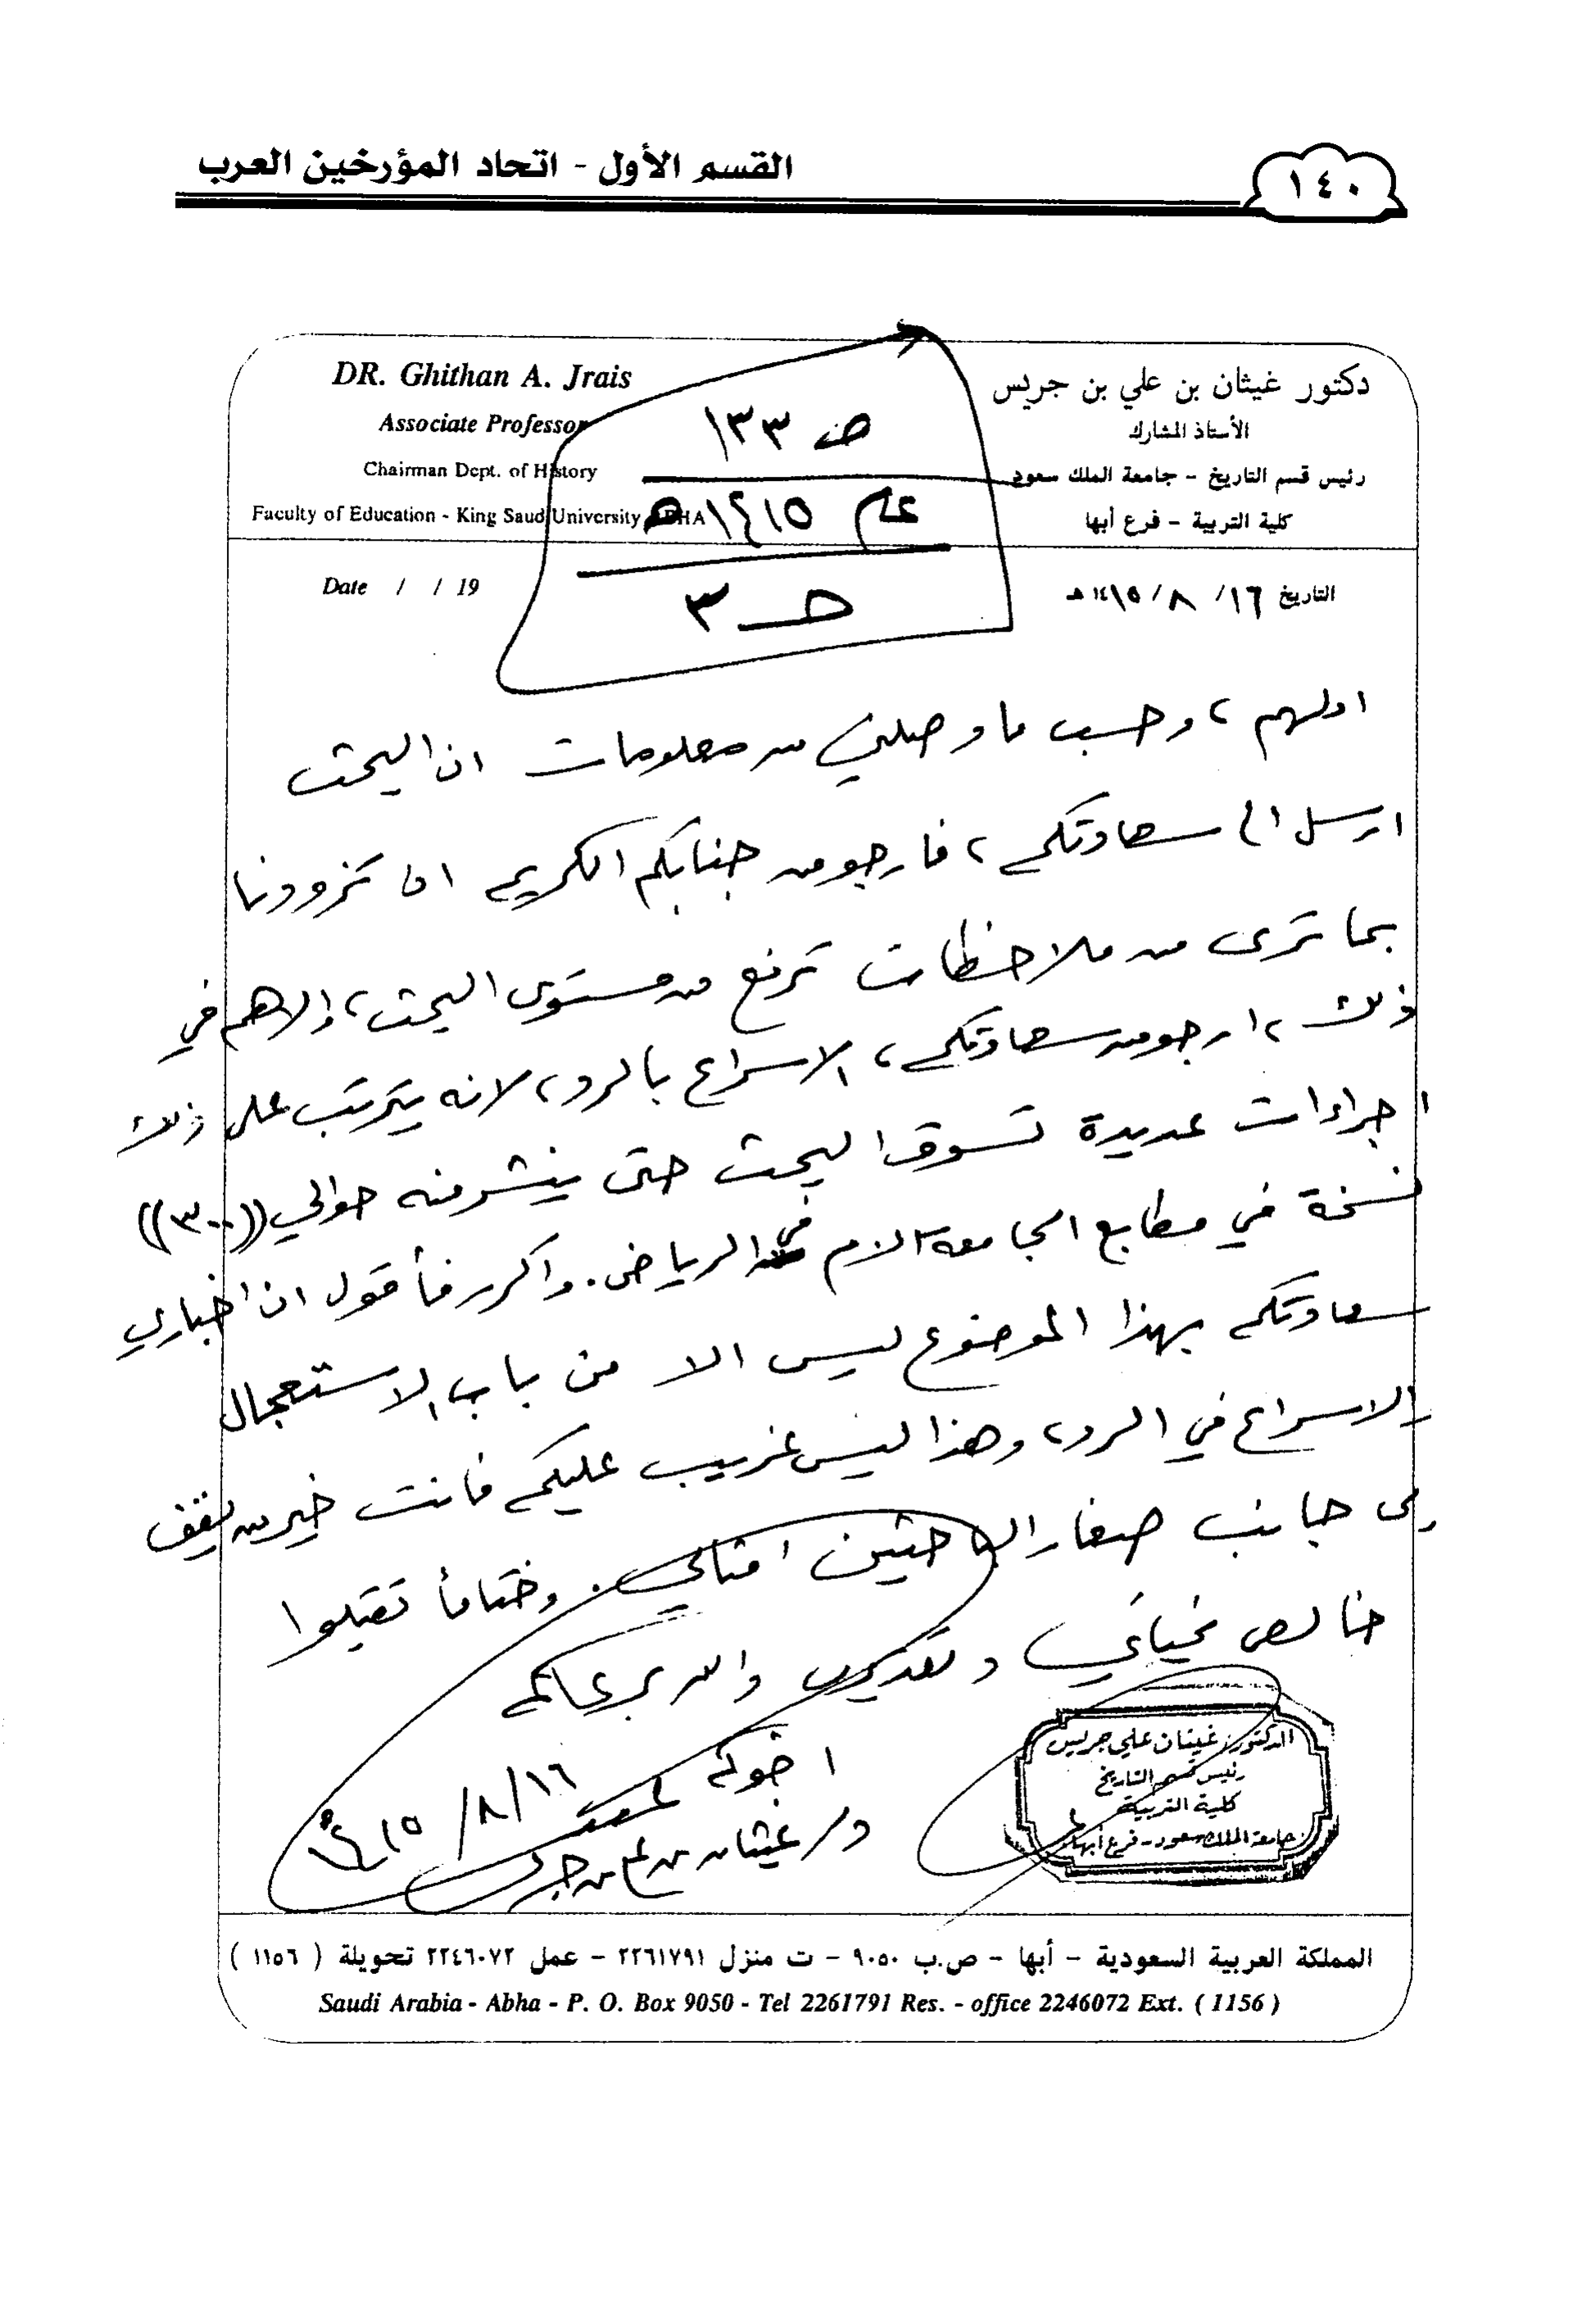 القسم الأول - اتحاد المؤرخين العرب
١٤٠
DR. Ghithan A. Jrais
Associate Professor
Chairman Dept. of History
Faculty of Education - King Saud University ABHA
دكتور غيثان بن علي بن جريس
الأستاذ المشارك
رئيس قسم التاريخ - جامعة الملك سعود
كلية التربية - فرع أبها
ص ١٣٣
عام ١٤١٥هـ
حـ ٣
Date / / 19
التاريخ ١٦/ ٨/ ١٤١٥هـ
اولهم، وحسب ما وصلني من معلومات ان البحث
ارسل الى سعادتكم، فارجو من جنابكم الكريم ان تزودونا
بما ترى من ملاحظات ترفع من مستوى البحث، والاهم في
ذلك، ارجو من سعادتكم، الاسراع بالرد، لانه يترتب على ذلك
اجراءات عديدة تسوق البحث حتى ينشر منه حوالي ((٣٠٠))
نسخة في مطابع الجامعة الام في الرياض. واكرر فأقول ان اخباري
سعادتكم بهذا الموضوع ليس الا من باب الاستعجال
والاسراع في الرد، وهذا ليس غريب عليكم فانت خير من يقف
الى جانب صغار الباحثين امثالي. وختاماً تقبلوا
خالص تحياتي وتقديري والله يرعاكم
اخوكم
د/ غيثان بن علي بن جريس
١٦/٨/١٤١٥هـ
الدكتور/ غيثان علي جريس
رئيس قسم التاريخ
كلية التربية
جامعة الملك سعود - فرع أبها
المملكة العربية السعودية - أبها - ص.ب ٩٠٥٠ - ت منزل ٢٢٦١٧٩١ - عمل ٢٢٤٦٠٧٢ تحويلة ( ١١٥٦ )
Saudi Arabia - Abha - P. O. Box 9050 - Tel 2261791 Res. - office 2246072 Ext. ( 1156 )